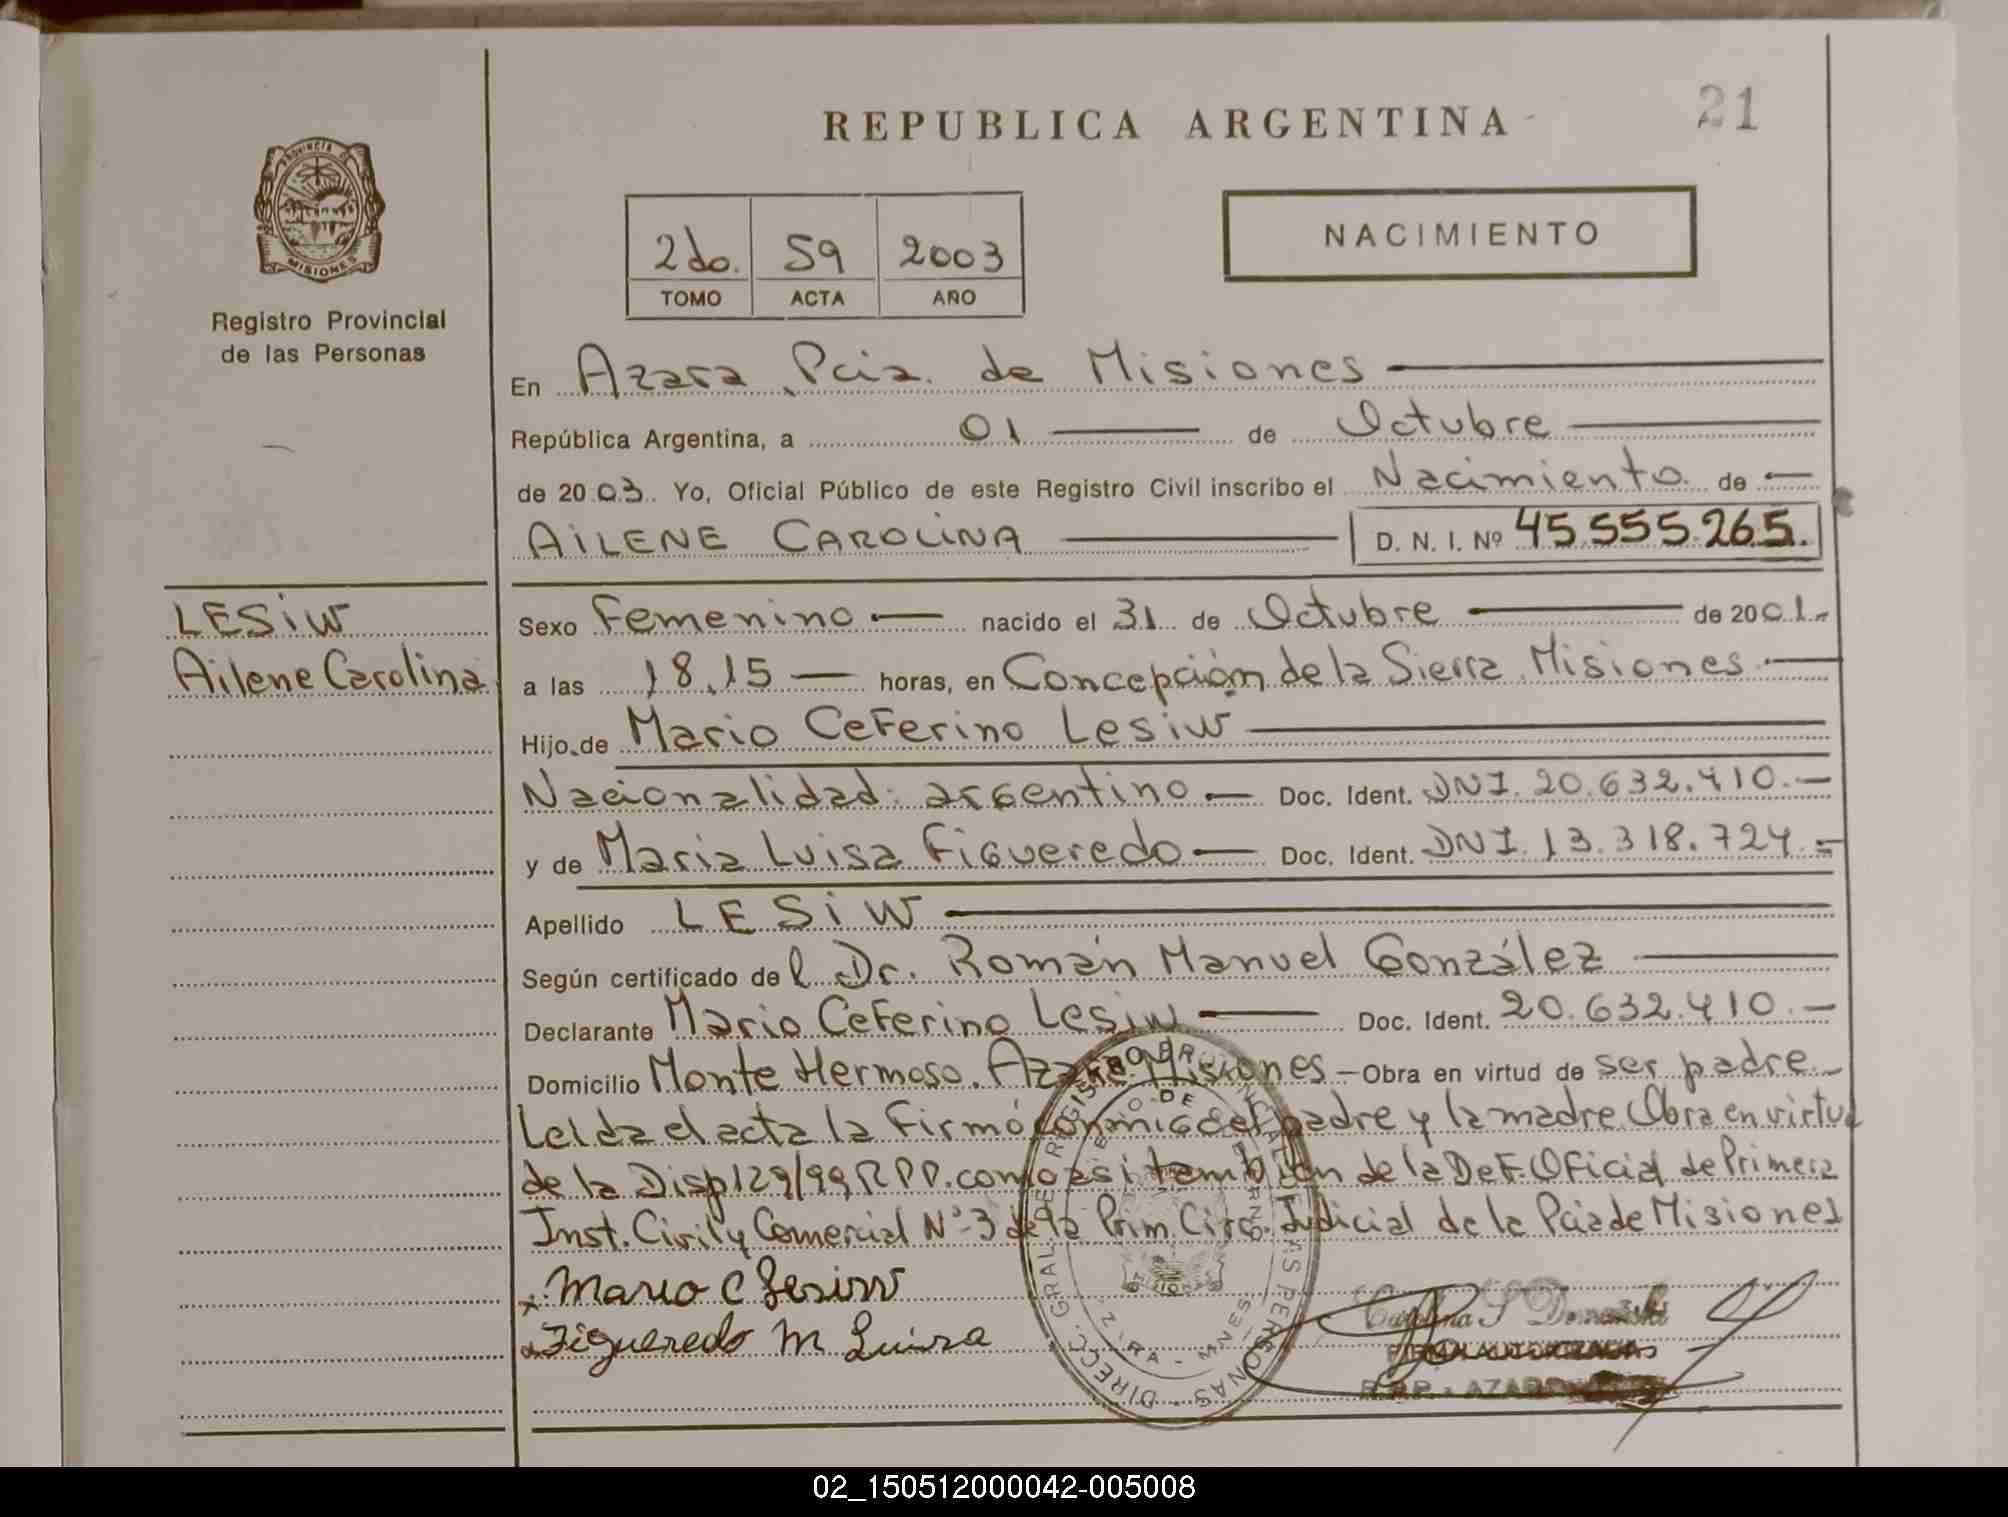 21
REPUBLICA ARGENTINA
PROVINCIA DE
MISIONES
Registro Provincial
de las Personas
2do. 59 2003
TOMO ACTA AÑO
NACIMIENTO
En Azara, Pcia. de Misiones
República Argentina, a 01 de Octubre
de 2003. Yo, Oficial Público de este Registro Civil inscribo el Nacimiento de
AiLENE CAROLINA D. N. I. Nº 45.555.265.
LESiW
Ailene Carolina
Sexo Femenino nacido el 31 de Octubre de 2001.-
a las 18,15 horas, en Concepción de la Sierra, Misiones
Hijo de Mario Ceferino Lesiw
Nacionalidad: argentino Doc. Ident. DNI. 20.632.410.-
y de Maria Luisa Figueredo Doc. Ident. DNI. 13.318.724.-
Apellido LESiW
Según certificado del Dr. Román Manuel González
Declarante Mario Ceferino Lesiw Doc. Ident. 20.632.410.-
Domicilio Monte Hermoso. Azara Misiones - Obra en virtud de ser padre.-
Leida el acta la firmó conmigo el padre y la madre. Obra en virtud
de la Disp 129/99 RPP. como asi también de la Def. Oficial de Primera
Inst. Civil y Comercial Nº 3 de la Prim. Circ. Judicial de la Pcia de Misiones
x Mario C Lesiw
x Figueredo M Luisa
DIRECC. GRAL. DE REGISTRO PROVINCIAL DE LAS PERSONAS
Carolina S
R.P.P. - AZARA
02_150512000042-005008